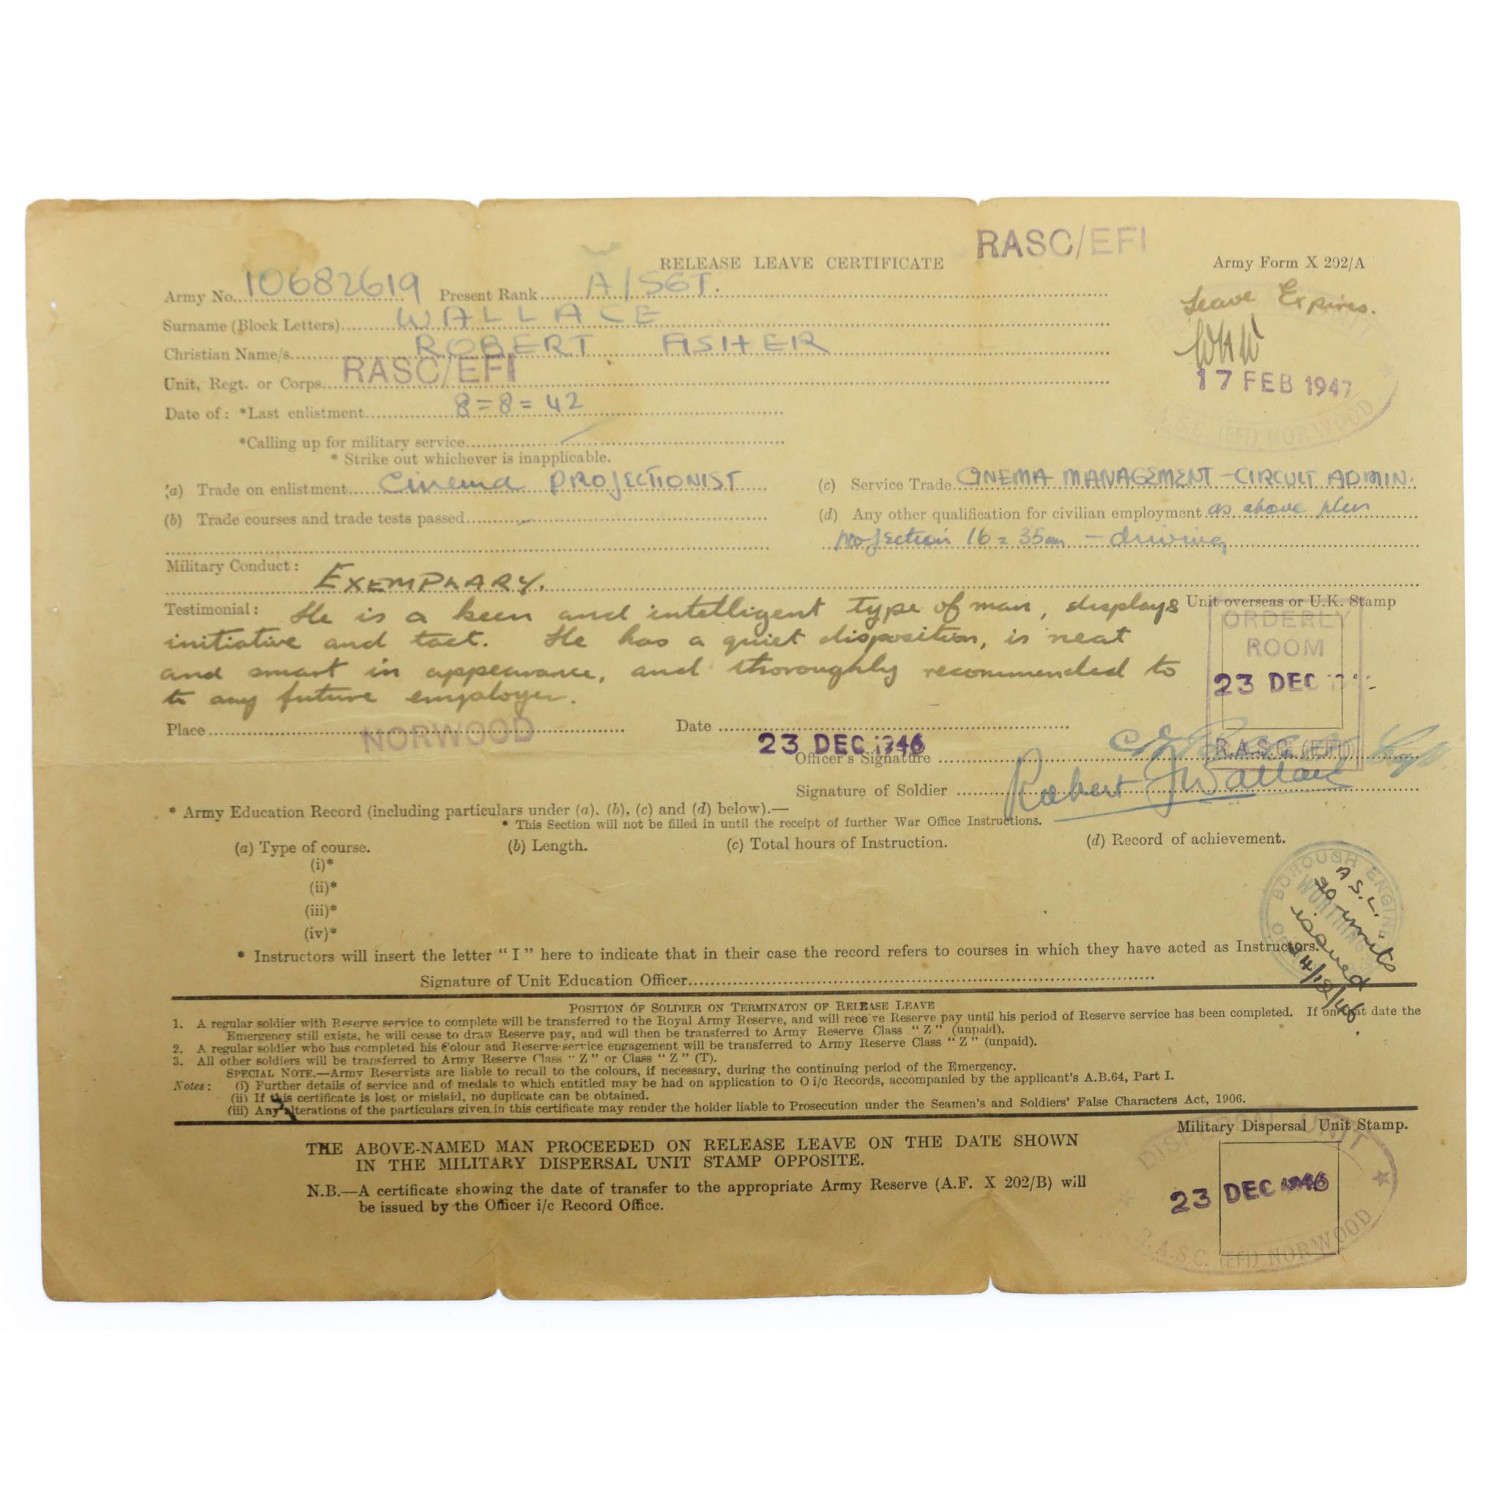 RASC/EFI
RELEASE LEAVE CERTIFICATE
Army Form X 202/A
Army No. 10682619 Present Rank A/SGT.
Surname (Block Letters) WALLACE
Christian Name/s ROBERT FISHER
Unit, Regt. or Corps RASC/EFI
Leave Expires.
17 FEB 1947
(EFI) NORWOOD
Date of: *Last enlistment 8=8=42
*Calling up for military service
* Strike out whichever is inapplicable.
(a) Trade on enlistment Cinema PROJECTIONIST
(c) Service Trade CINEMA MANAGEMENT - CIRCUIT ADMIN.
(b) Trade courses and trade tests passed
(d) Any other qualification for civilian employment as above plus
projection 16 = 35mm - driving
Military Conduct: EXEMPLARY.
Testimonial: He is a keen and intelligent type of man, displays
initiative and tact. He has a quiet disposition, is neat
and smart in appearance, and thoroughly recommended to
to any future employer.
Unit overseas or U.K. Stamp
ORDERLY
ROOM
23 DEC
R.A.S.C. (EFI)
Place NORWOOD Date 23 DEC 1946
Officer's Signature
Signature of Soldier Robert F Wallace
* Army Education Record (including particulars under (a), (b), (c) and (d) below).—
* This Section will not be filled in until the receipt of further War Office Instructions.
(a) Type of course. (b) Length. (c) Total hours of Instruction. (d) Record of achievement.
(i)*
(ii)*
(iii)*
(iv)*
BOROUGH ENGIN
WORTHING
A.S.L.
30 units
issued
24/12/46.
* Instructors will insert the letter "I" here to indicate that in their case the record refers to courses in which they have acted as Instructors.
Signature of Unit Education Officer
POSITION OF SOLDIER ON TERMINATON OF RELEASE LEAVE
1. A regular soldier with Reserve service to complete will be transferred to the Royal Army Reserve, and will receive Reserve pay until his period of Reserve service has been completed. If on that date the
Emergency still exists, he will cease to draw Reserve pay, and will then be transferred to Army Reserve Class "Z" (unpaid).
2. A regular soldier who has completed his Colour and Reserve service engagement will be transferred to Army Reserve Class "Z" (unpaid).
3. All other soldiers will be transferred to Army Reserve Class "Z" or Class "Z" (T).
SPECIAL NOTE.—Army Reservists are liable to recall to the colours, if necessary, during the continuing period of the Emergency.
Notes: (i) Further details of service and of medals to which entitled may be had on application to O i/c Records, accompanied by the applicant's A.B.64, Part I.
(ii) If this certificate is lost or mislaid, no duplicate can be obtained.
(iii) Any alterations of the particulars given in this certificate may render the holder liable to Prosecution under the Seamen's and Soldiers' False Characters Act, 1906.
THE ABOVE-NAMED MAN PROCEEDED ON RELEASE LEAVE ON THE DATE SHOWN
IN THE MILITARY DISPERSAL UNIT STAMP OPPOSITE.
N.B.—A certificate showing the date of transfer to the appropriate Army Reserve (A.F. X 202/B) will
be issued by the Officer i/c Record Office.
Military Dispersal Unit Stamp.
DISPERSAL UNIT
23 DEC 1946
R.A.S.C. (EFI) NORWOOD